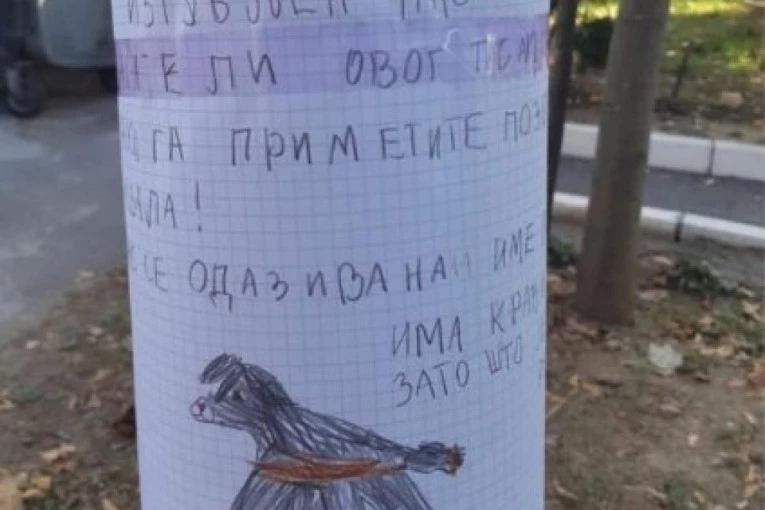 ИЗГУБЉЕН ПАС
ТЕЛИ ОВОГ ПСА
ГА ПРИМЕТИТЕ ПОЗ
АЛА!
СЕ ОДАЗИВА НА ИМЕ
ИМА КРА
ЗАТО ШТО